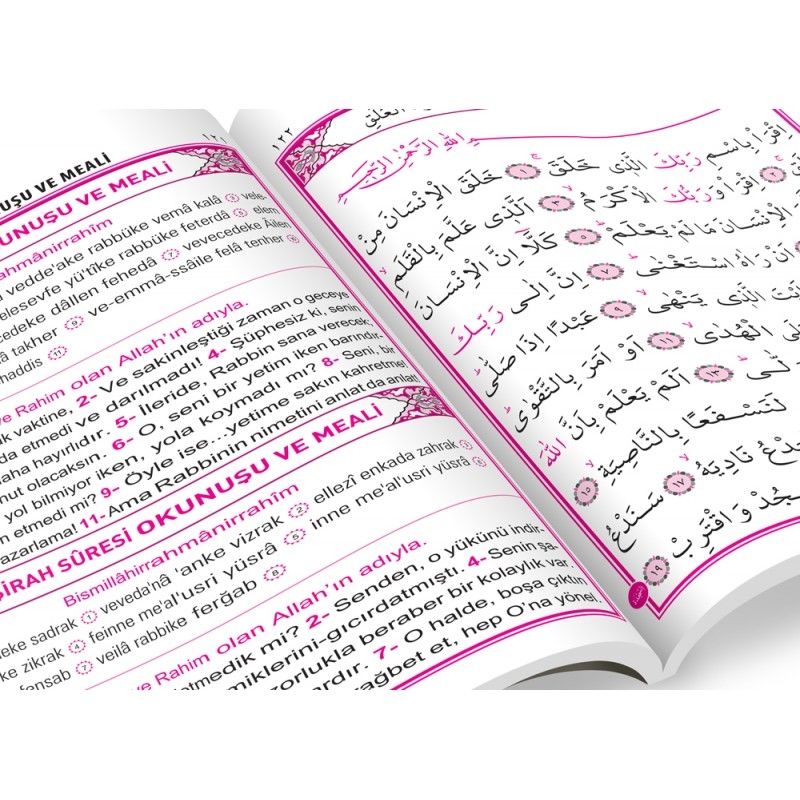 ١٢١
UŞU VE MEALİ
UNUŞU VE MEALİ
ahmânirrahîm
vedde'ake rabbüke vemâ kalâ ٣ vele-
elesevfe yü'tîke rabbüke feterdâ ٥ elem
cedeke dâllen fehedâ ٧ vevecedeke Âilen
takher ٩ ve-emmâ-ssâile felâ tenher ١٠
haddis ١١
ve Rahim olan Allah'ın adıyla.
k vaktine, 2- Ve sakinleştiği zaman o geceye
da etmedi ve darılmadı! 4- Şüphesiz ki, senin
aha hayırlıdır. 5- İleride, Rabbin sana verecek;
nut olacaksın. 6- O, seni bir yetim iken barındır-
yol bilmiyor iken, yola koymadı mı? 8- Seni, bir
n etmedi mi? 9- Öyle ise...yetime sakın kahretme!
azarlama! 11- Ama Rabbinin nimetini anlat da anlat!
ŞİRAH SÛRESİ OKUNUŞU VE MEALİ
Bismillâhirrahmânirrahîm
eke sadrak ١ veveda'nâ 'anke vizrak ٢ ellezî enkada zahrak ٣
ke zikrak ٤ feinne me'al'usri yüsrâ ٥ inne me'al'usri yüsrâ ٦
fensab ٧ veilâ rabbike ferğab ٨
ve Rahim olan Allah'ın adıyla.
etmedik mi? 2- Senden, o yükünü indir-
miklerini-gıcırdatmıştı. 4- Senin şa-
zorlukla beraber bir kolaylık var.
ardır. 7- O halde, boşa çıktın
ağbet et, hep O'na yönel.
١٢٢
الْعَلَقِ
اللّٰهِ الرَّحْمٰنِ الرَّحِيمِ
اِقْرَأْ بِاسْمِ رَبِّكَ الَّذٖى خَلَقَ ١ خَلَقَ الْاِنْسَانَ مِنْ
٢ اِقْرَأْ وَرَبُّكَ الْاَكْرَمُ ٣ اَلَّذٖى عَلَّمَ بِالْقَلَمِ
الْاِنْسَانَ مَا لَمْ يَعْلَمْ ٥ كَلَّا اِنَّ الْاِنْسَانَ
اَنْ رَاٰهُ اسْتَغْنٰى ٧ اِنَّ اِلٰى رَبِّكَ
الَّذٖى يَنْهٰى ٩ عَبْدًا اِذَا صَلّٰى
الْهُدٰى ١١ اَوْ اَمَرَ بِالتَّقْوٰى
١٣ اَلَمْ يَعْلَمْ بِاَنَّ اللّٰهَ
لَنَسْفَعًا بِالنَّاصِيَةِ ١٥
نَادِيَهُ ١٧ سَنَدْعُ
وَاقْتَرِبْ ١٩